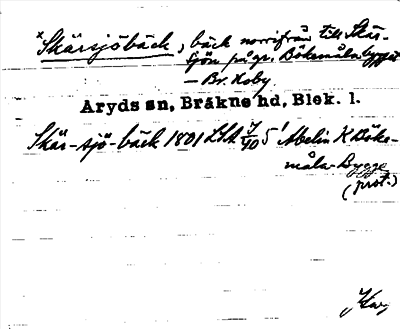 *Skärsjöbäck, bäck norrifrån till Skär-
sjön på gr. Bökemålabygget
– Br. Hoby.
Aryds sn, Bräkne hd, Blek. l.
Skär-sjö-bäck 1801 LSA 7/40 5 Abelin K Böke-
måla-Bygge
(prot.)